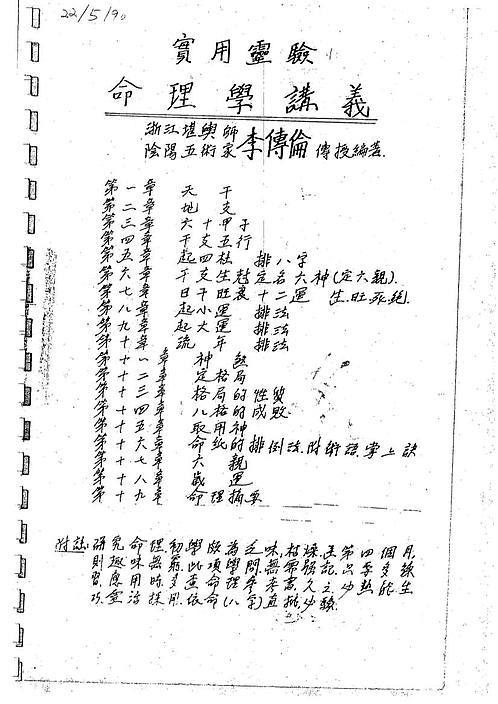 22/5/90
實用靈驗
命理學講義
浙江堪輿師
陰陽五術家 李傳倫 傳授編著.
第一章 天干
第二章 地支
第三章 六十甲子
第四章 干支五行
第五章 起四柱 排八字
第六章 干支生尅定名六神(定六親).
第七章 日干旺衰十二運 生.旺.死.絕.
第八章 起小運 排法
第九章 起大運 排法
第十章 流年 排法
第十一章 神煞
第十二章 定格局
第十三章 格局的性質
第十四章 八格的成敗
第十五章 取用神
第十六章 命紙的排例法.附術語.掌上訣
第十七章 六親
第十八章 歲運
第十九章 命理摘要
附誌: 研究命理.初學頗為乏味枯燥.至第四個月.
則趣味無窮.此項學問無常
習應用時多查
巧.靈活採用.依命理